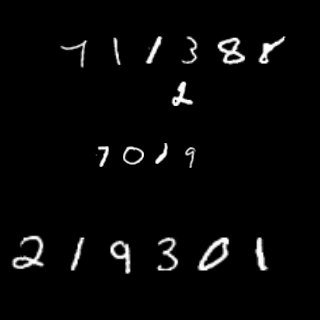 711388
2
7019
219301